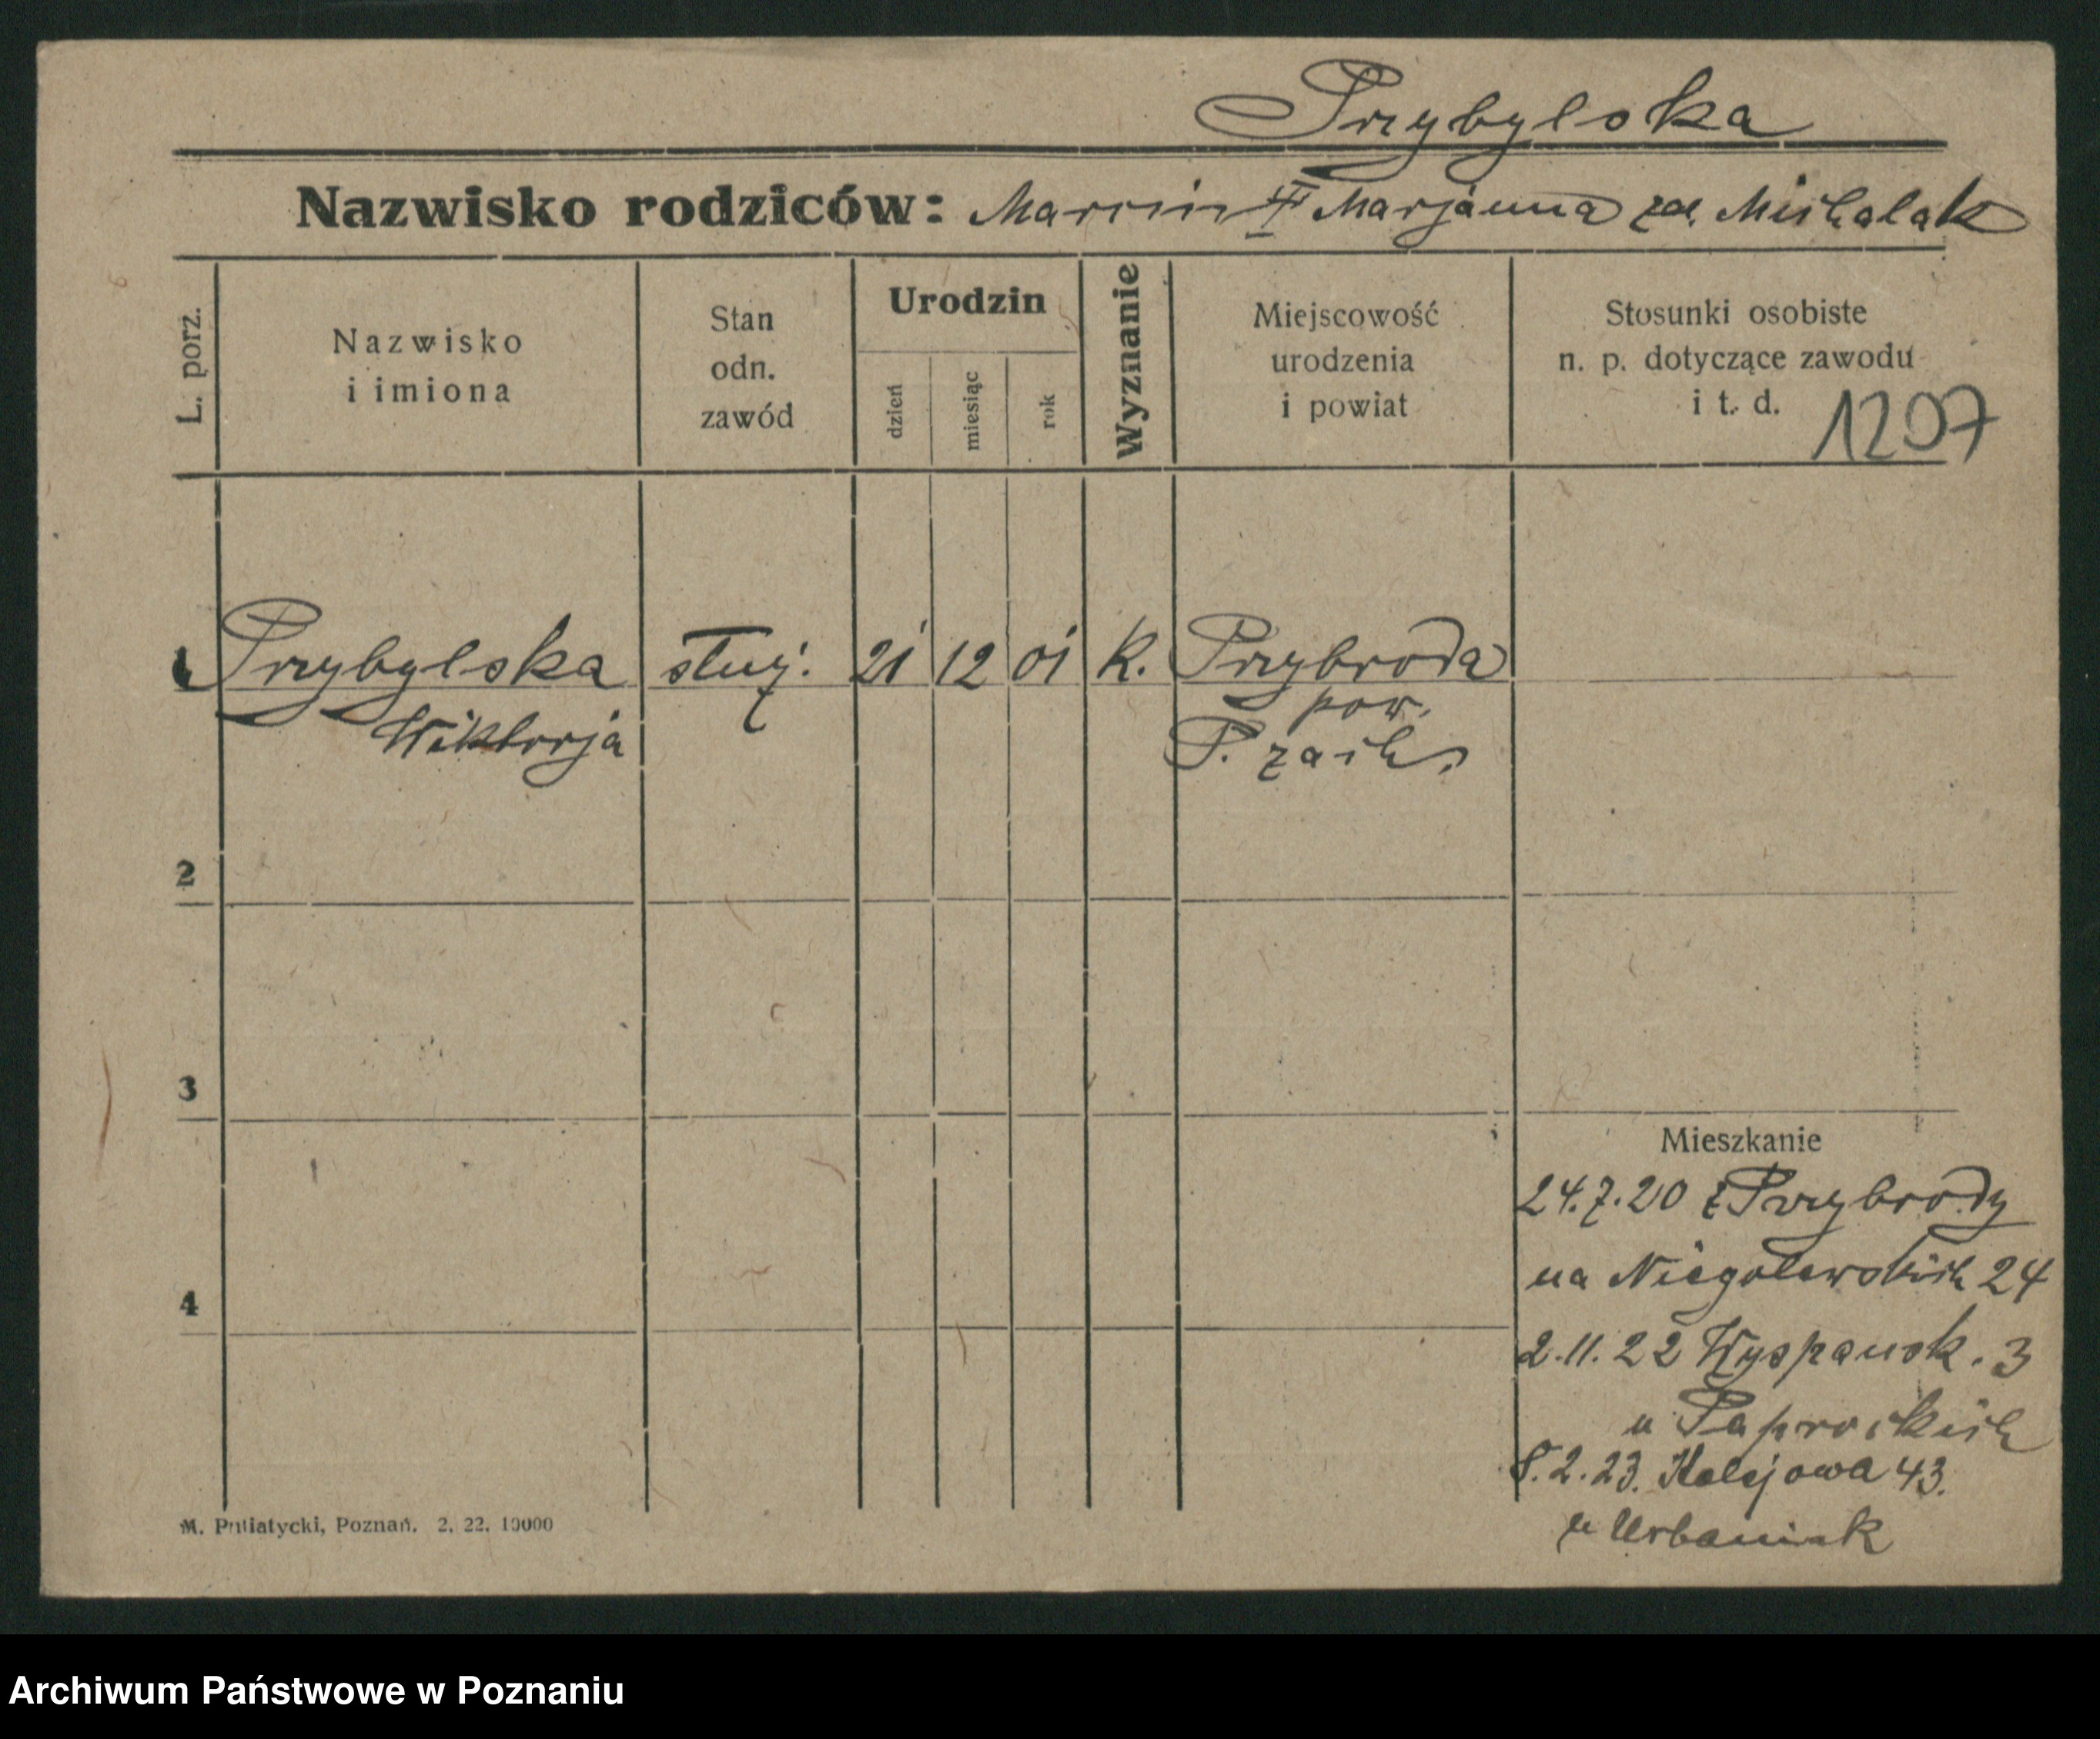 Przybylska
Nazwisko rodziców: Marcin Marjanna zd. Michalak
L. porz.
Nazwisko
i imiona
Stan
odn.
zawód
Urodzin
dzień
miesiąc
rok
Wyznanie
Miejscowość
urodzenia
i powiat
Stosunki osobiste
n. p. dotyczące zawodu
i t. d.
1207
1 Przybylska służ. 21 12 01 k. Przybroda
Wiktorja
pow.
P. zach.
2
3
4
Mieszkanie
24.7.20 z Przybrody
na Niegolewskich 24
2.11.22 Wyspańsk. 3
u Paprockich
8.2.23. Kolejowa 43.
u Urbaniak
M. Putiatycki, Poznań. 2. 22. 10000
Archiwum Państwowe w Poznaniu